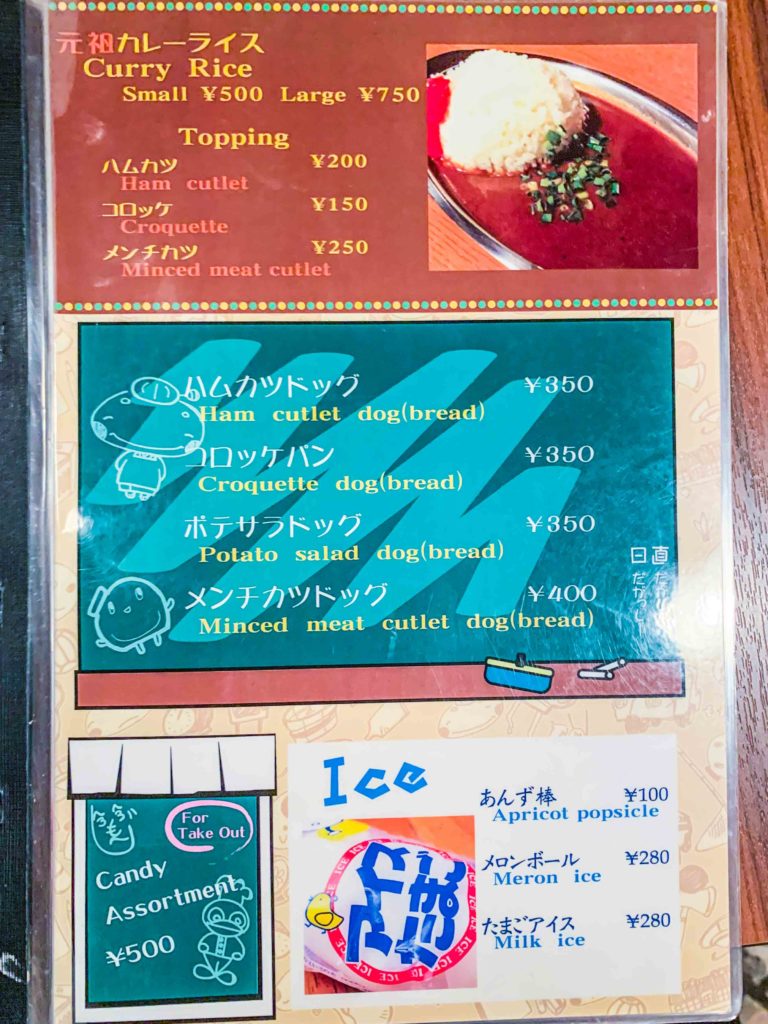 元祖カレーライス
Curry Rice
Small ¥500 Large ¥750
Topping
ハムカツ ¥200
Ham cutlet
コロッケ ¥150
Croquette
メンチカツ ¥250
Minced meat cutlet
ハムカツドッグ ¥350
Ham cutlet dog(bread)
コロッケパン ¥350
Croquette dog(bread)
ポテサラドッグ ¥350
Potato salad dog(bread)
メンチカツドッグ ¥400
Minced meat cutlet dog(bread)
日直
For
Take Out
Candy
Assortment
¥500
Ice
あんず棒 ¥100
Apricot popsicle
メロンボール ¥280
Meron ice
たまごアイス ¥280
Milk ice
アイス
たまご
ICE ICE ICE ICE